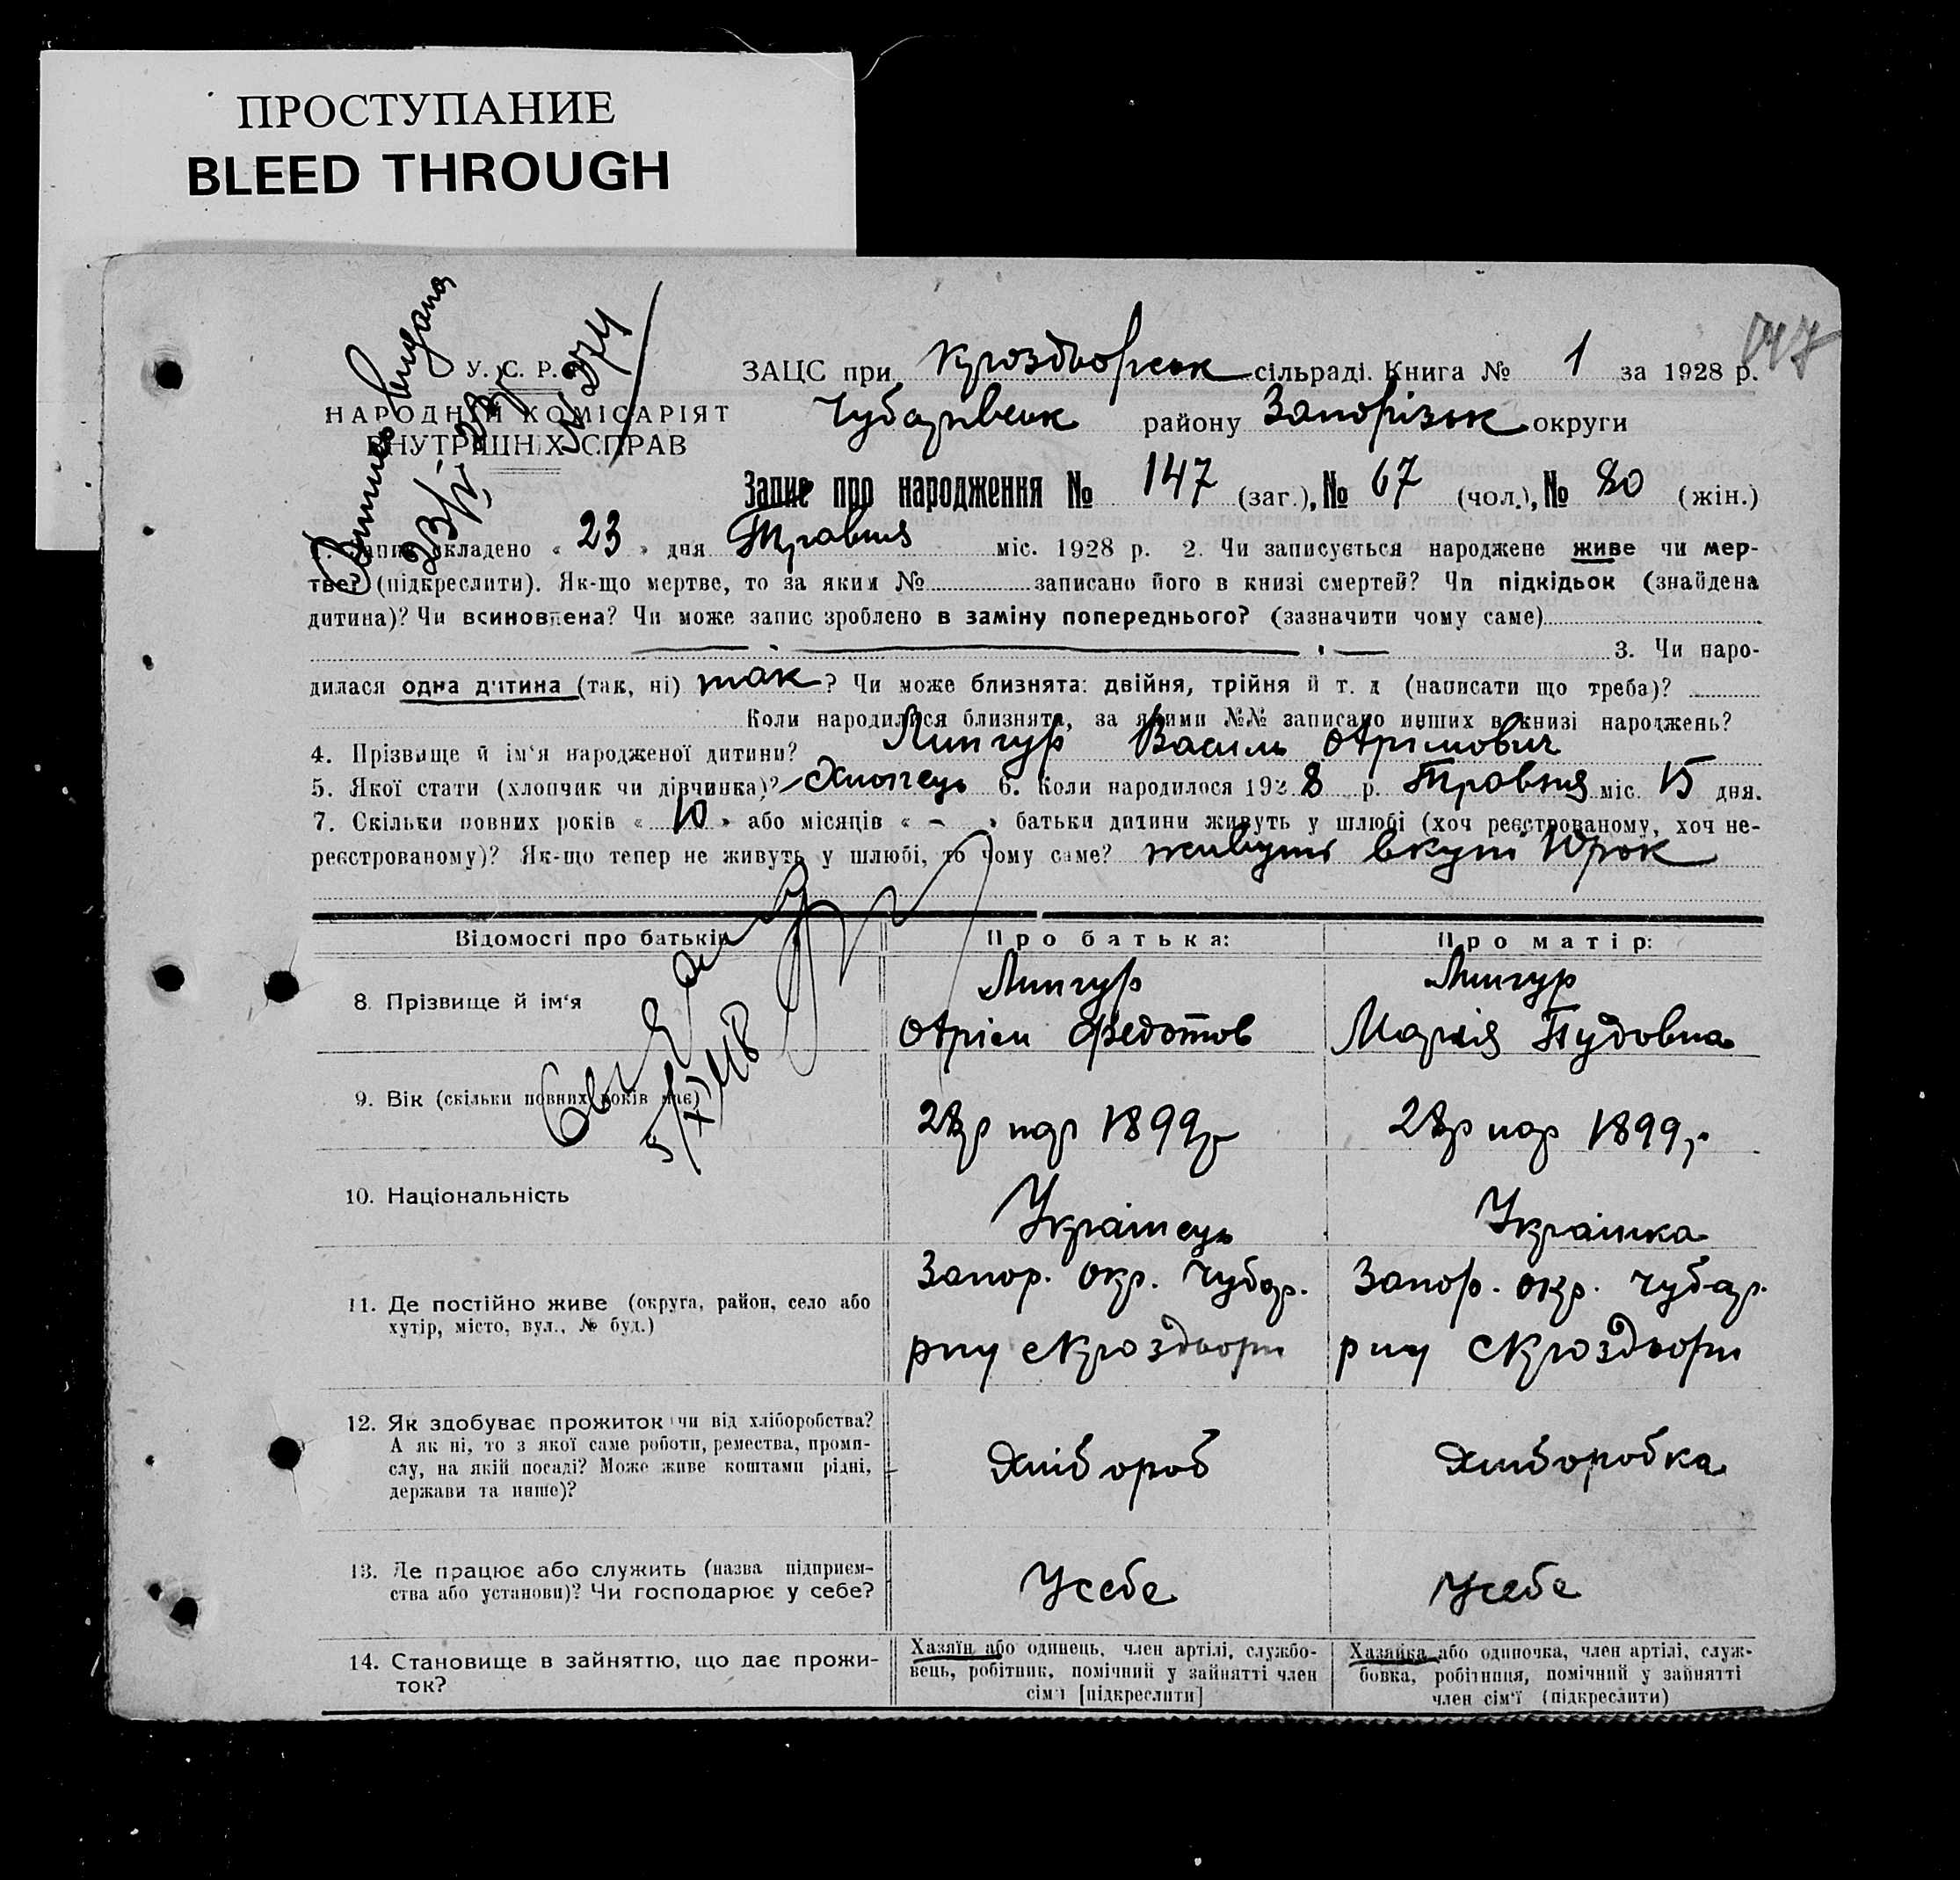 ПРОСТУПАНИЕ
BLEED THROUGH
147
Витяг видано
У. С. Р. Р.
НАРОДНІЙ КОМІСАРІЯТ
ВНУТРІШНІХ СПРАВ
ЗАЦС при Кроздворськ сільраді. Книга № 1 за 1928 р.
Чубарівськ району Запорізьк округи
Запис про народження № 147 (заг.), № 67 (чол.), № 80 (жін.)
1. Запис складено « 23 » дня Травня міс. 1928 р. 2. Чи записується народжене живе чи мер-
тве? (підкреслити). Як-що мертве, то за яким № записано його в книзі смертей? Чи підкідьок (знайдена
дитина)? Чи всиновлена? Чи може запис зроблено в заміну попереднього? (зазначити чому саме)
3. Чи наро-
дилася одна дитина (так, ні) так ? Чи може близнята: двійня, трійня й т. д (написати що треба)?
Коли народилися близнята, за якими №№ записано инших в книзі народжень?
4. Прізвище й ім'я народженої дитини? Василь
5. Якої стати (хлопчик чи дівчинка)? Хлопець 6. Коли народилося 192 8 р. Травня міс. 15 дня.
7. Скільки повних років « 10 » або місяців « - » батьки дитини живуть у шлюбі (хоч реєстрованому, хоч не-
реєстрованому)? Як-що тепер не живуть у шлюбі, то чому саме? живуть вкупі 10 рок
Відомості про батьків Про батька: Про матір:
8. Прізвище й ім'я
Федотов Марія Тудовна
9. Вік (скільки повних років має) 28 р нар 1899 р 28 р нар 1899 р.
10. Національність Українець Українка
11. Де постійно живе (округа, район, село або
хутір, місто, вул., № буд.)
Запор. окр. Чубар. Запор. окр. Чубар.
рну с Кроздвори рну с Кроздвори
12. Як здобуває прожиток чи від хліборобства?
А як ні, то з якої саме роботи, ремества, проми-
слу, на якій посаді? Може живе коштами рідні,
держави та инше)?
Хлібороб Хліборобка
13. Де працює або служить (назва підприєм-
ства або установи)? Чи господарює у себе?
У себе У себе
14. Становище в зайняттю, що дає прожи-
ток?
Хазяїн або одинець, член артілі, службо-
вець, робітник, помічний у зайнятті член
сім'ї [підкреслити]
Хазяйка або одиночка, член артілі, служ-
бовка, робітниця, помічний у зайнятті
член сім'ї (підкреслити)